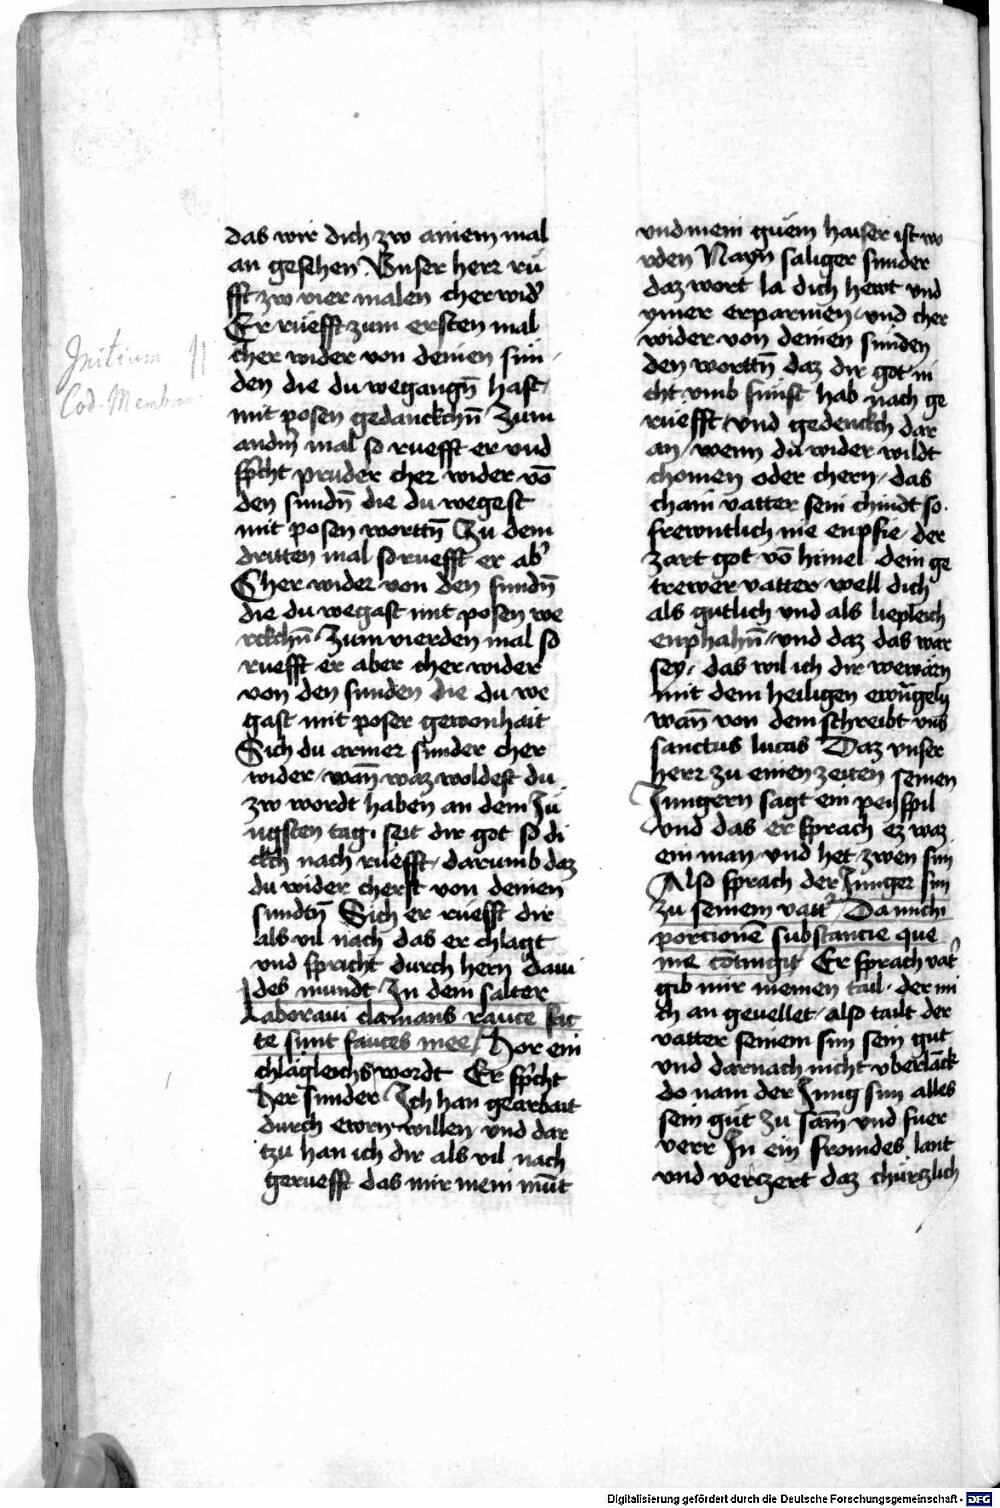 das wir dich zw ainem mal
an gesehen. Vnser herr rü
fft zw vier malen cher wid̾
Er rüefft zum ersten mal
cher wider von deinen sün
den die du wegangn̄ hast
mit posen gedanckchn̄ Zum
andn̄ mal so ruefft er vnd
sp̄cht pruder cher wider vō
den sündn̄ die du wegest
mit posen wortn̄ Zu dem
dritten mal so ruefft er ab̾
Cher wider von den sundn̄
die du wegast mit posen we
rckchn̄ Zum vierden mal so
ruefft er aber cher wider
von den sunden die du we
gast mit poser gewonhait
Sich du armer sunder cher
wider wan̄ waz woldest du
zw wordt haben an dem Ju
ngsten tag. seit dir got so di
ckch nach rüefft darumb daz
du wider cherst von deinen
sundtn̄ Sich er rüefft dir
als vil nach das er chlagt
vnd spricht durch hern daui
des mundt In dem salter
Laboraui clamans rauce fac
te sunt fauces mee / Hor ein
chlägleichs wordt Er sp̄cht
her sunder Ich han gearbait
durch ewrn willen vnd dar
tzu han ich dir als vil nach
geruefft das mir mein mūt
vnd mein guem haiser ist wo
rden Nayn saliger sunder
daz wort la dich hewt vnd
ymer erparmen vnd cher
wider von deinen sunden
den wortn̄ daz dir got ni
cht vmb sünst hab nach ge
ruefft vnd gedenckch dar
an wenn du wider wildt
chomen oder chern das
chain vatter sein chindt so
frewntlich nie enpfie der
zart got vō himel dein ge
trewer vatter well dich
als gutlich vnd als liepleich
enphahn̄ vnd daz das war
sey, das wil ich dir wewärn
mit dem heiligen ewāngely
Wan̄ von dem schreibt vns
sanctus lucas Daz vnser
herr zu einen zeiten seinen
Jungern sagt ein peyspil
vnd das er sprach ez waz
ein man vnd het zwen sun
Also sprach der Junger sun
zu seinem vatt̾ Da michi
porcionē substancie que
me cōtingit Er sprach vat̾
gib mir meinen tail. der mi
ch an geuellet also tailt der
vatter seinem sun sein gut
vnd darnach nicht vberlāck
do nam der Jung sun alles
sein gut zu sām vnd fuer
verr In ein fromdes lant
vnd verczert daz chürczlich
Initium
Cod. Membran.
Digitalisierung gefördert durch die Deutsche Forschungsgemeinschaft - DFG